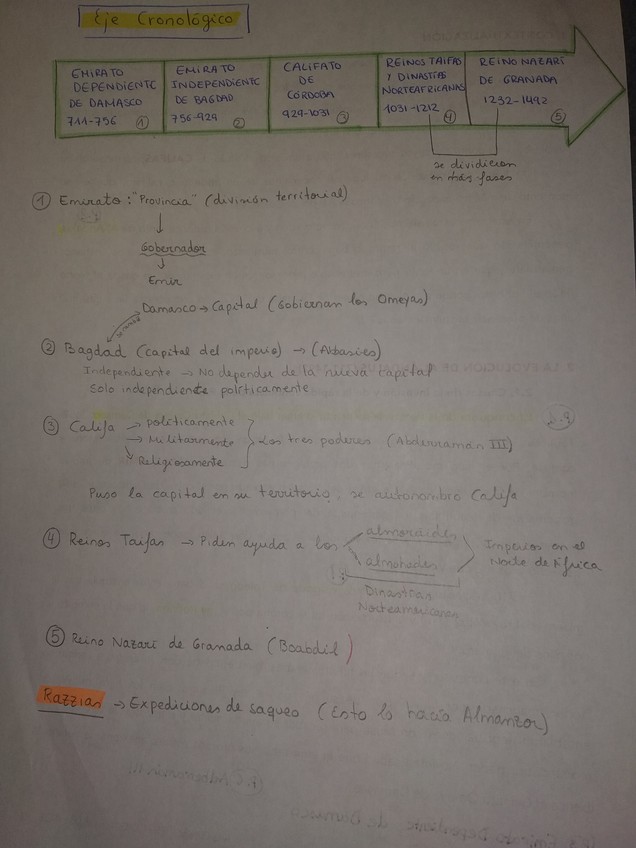 Eje Cronológico
EMIRATO
DEPENDIENTE
DE DAMASCO
711-756 ①
EMIRATO
INDEPENDIENTE
DE BAGDAD
756-929 ②
CALIFATO
DE
CÓRDOBA
929-1031 ③
REINOS TAIFAS
Y DINASTÍAS
NORTEAFRICANAS
1031-1212 ④
REINO NAZARÍ
DE GRANADA
1232-1492 ⑤
se dividieron
en más fases
① Emirato: "Provincia" (división territorial)
↓
Gobernador
↓
Emir
Damasco → Capital (Gobiernan los Omeyas)
② Bagdad (capital del imperio) → (Abbasíes)
Independiente → No depender de la nueva capital
Solo independiente políticamente
③ Califa → políticamente
→ Militarmente
→ Religiosamente
Los tres poderes (Abderramán III)
Puso la capital en su territorio, se autonombro Califa
④ Reinos Taifas → Piden ayuda a los
almorávides
almohades
Imperios en el
Norte de África
Dinastías
Norteamericanas
⑤ Reino Nazarí de Granada (Boabdil)
Razzias → Expediciones de saqueo (Esto lo hacía Almanzor)